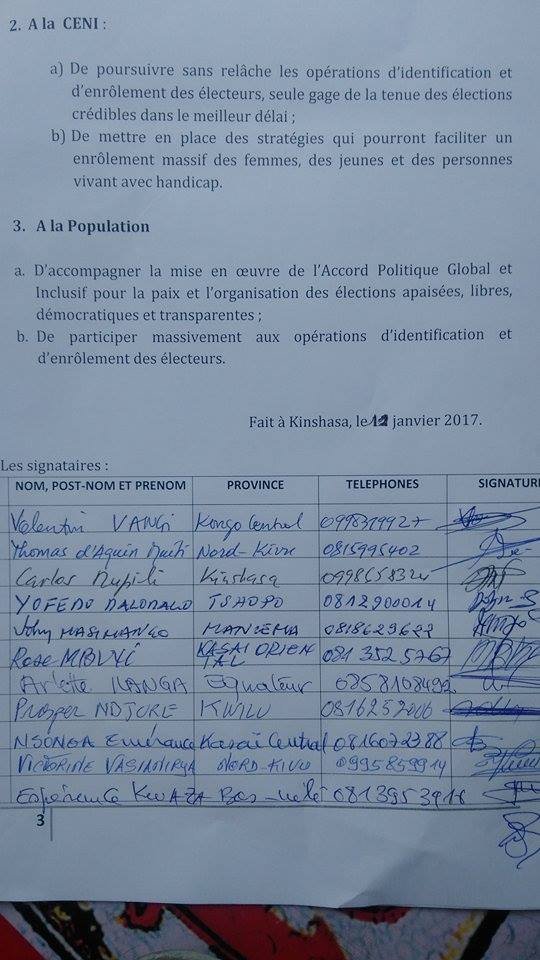 2. A la CENI :
a) De poursuivre sans relâche les opérations d'identification et
d'enrôlement des électeurs, seule gage de la tenue des élections
crédibles dans le meilleur délai ;
b) De mettre en place des stratégies qui pourront faciliter un
enrôlement massif des femmes, des jeunes et des personnes
vivant avec handicap.
3. A la Population
a. D'accompagner la mise en œuvre de l'Accord Politique Global et
Inclusif pour la paix et l'organisation des élections apaisées, libres,
démocratiques et transparentes ;
b. De participer massivement aux opérations d'identification et
d'enrôlement des électeurs.
Fait à Kinshasa, le 12 janvier 2017.
Les signataires :
NOM, POST-NOM ET PRENOM PROVINCE TELEPHONES SIGNATURE
Valentin VANGI Kongo Central 0998319927
Thomas d'Aquin Nord-Kivu 0815995402
Carlos Kinshasa
TSHOPO 0812900014
John MASIMANGO MANIEMA 0818629622
Rose KASAI ORIEN
TAL 081 3525767
Arlette ILANGA Equateur 0858108492
Prosper NDJURE KWILU
NSONGA Emérance Kasaï Central 0816072388
VICTORINE NORD-KIVU 0995859914
Espérance KWAZA Bas-Uélé
3